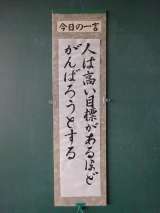 今日の一言
人は高い目標があるほど
がんばろうとする